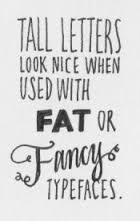 TALL LETTERS
LOOK NICE WHEN
USED WITH
FAT OR
Fancy
TYPEFACES.